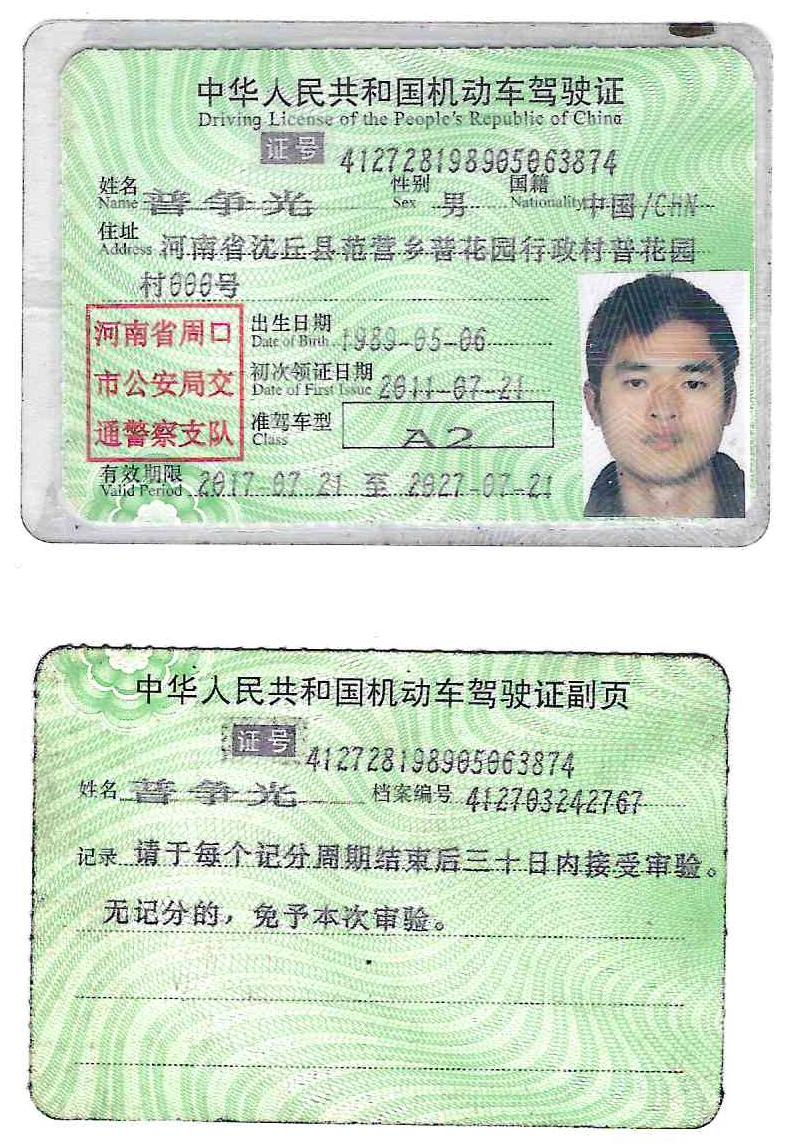 中华人民共和国机动车驾驶证
Driving License of the People's Republic of China
证号 412728198905063874
姓名 Name 普争光 性别 Sex 男 国籍 Nationality 中国/CHN
住址 Address 河南省沈丘县范营乡普花园行政村普花园
村000号
河南省周口
市公安局交
通警察支队
出生日期 Date of Birth 1989-05-06
初次领证日期 Date of First Issue 2011-07-21
准驾车型 Class A2
有效期限 Valid Period 2017-07-21 至 2027-07-21
中华人民共和国机动车驾驶证副页
证号 412728198905063874
姓名 普争光 档案编号 412703242767
记录 请于每个记分周期结束后三十日内接受审验。
无记分的，免予本次审验。